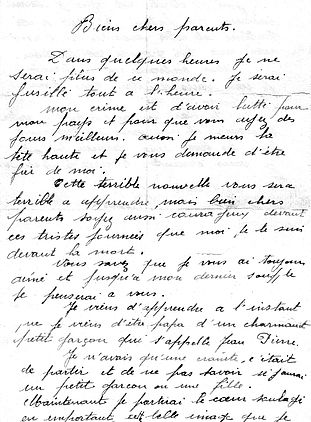 Biens chers parents.
Dans quelques heures je ne
serai plus de ce monde. Je serai
fusillé tout a l'heure.
mon crime est d'avoir lutté pour
mon pays et pour que vous ayez des
jours meilleurs. aussi je meurs la
tête haute et je vous demande d'être
fier de moi.
Cette terrible nouvelle vous sera
terrible a apprendre mais bien chers
parents soyez aussi courageux devant
ces tristes journees que moi, je le suis
devant la mort.
Vous savez que je vous ai toujours
aimé et jusqu'a mon dernier souffle
je penserai a vous.
Je viens d'apprendre a l'instant
que je viens d'être papa d'un charmant
petit garçon qui s'appelle Jean Pierre.
Je n'avais qu'une crainte, c'était
de partir et de ne pas savoir si j'aurai
un petit garcon ou une fille.
Maintenant je partirai le cœur soulagé
en emportant cette belle image que je